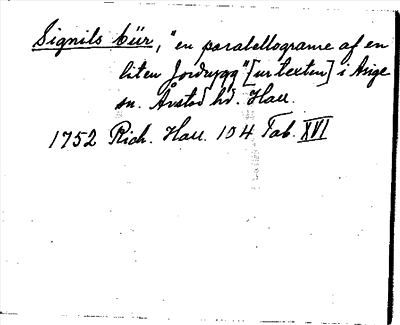 Signils bür, "en paralellograme af en
liten Jordrygg" [ur texten] i Ärige
sn. Årstad hd. Hall.
1752 Rich. Hall. 104 Tab. XVI